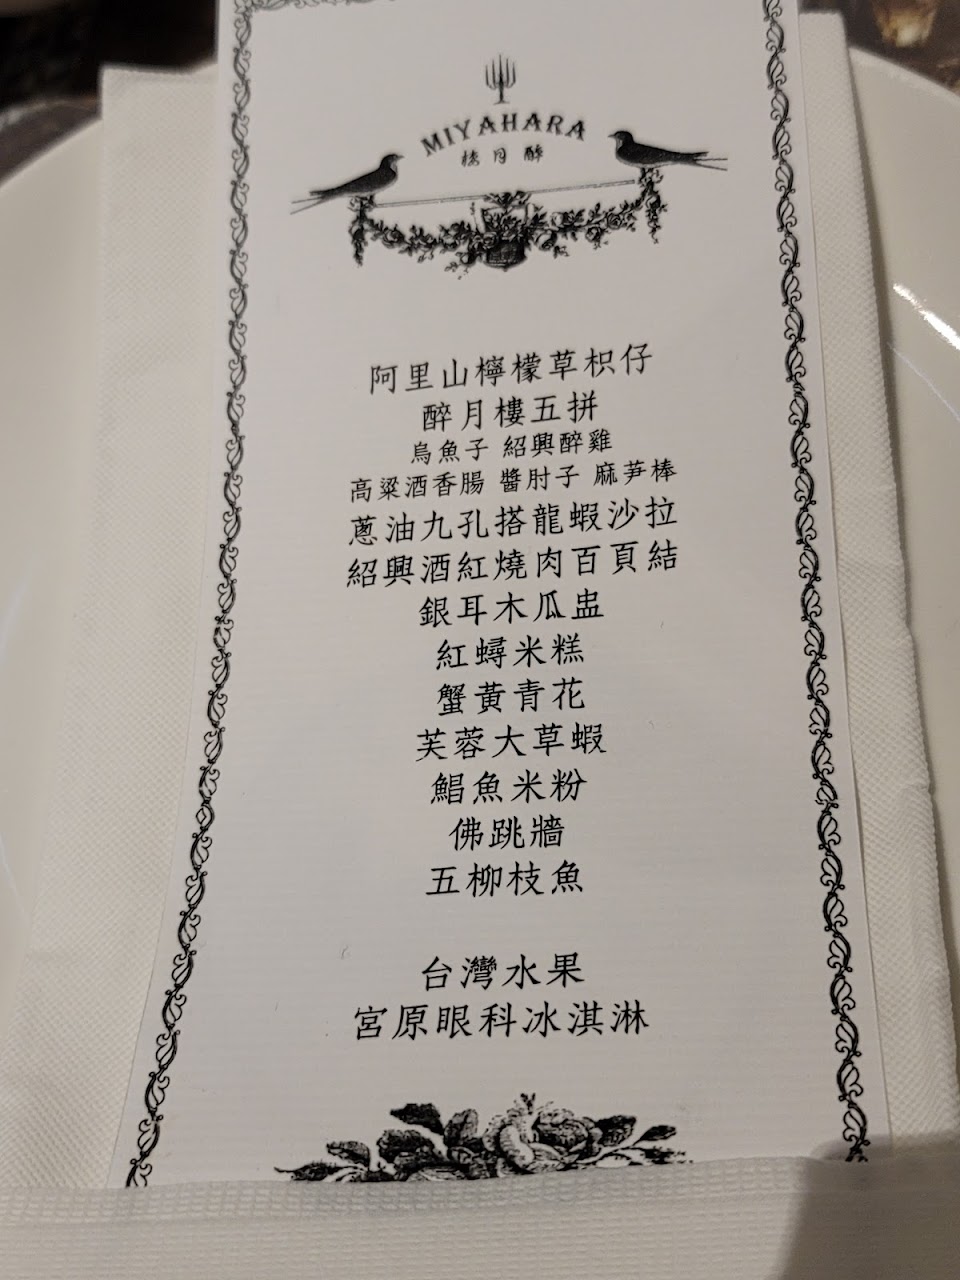 MIYAHARA
樓月醉
阿里山檸檬草枳仔
醉月樓五拼
烏魚子 紹興醉雞
高粱酒香腸 醬肘子 麻芛棒
蔥油九孔搭龍蝦沙拉
紹興酒紅燒肉百頁結
銀耳木瓜盅
紅蟳米糕
蟹黃青花
芙蓉大草蝦
鯧魚米粉
佛跳牆
五柳枝魚
台灣水果
宮原眼科冰淇淋